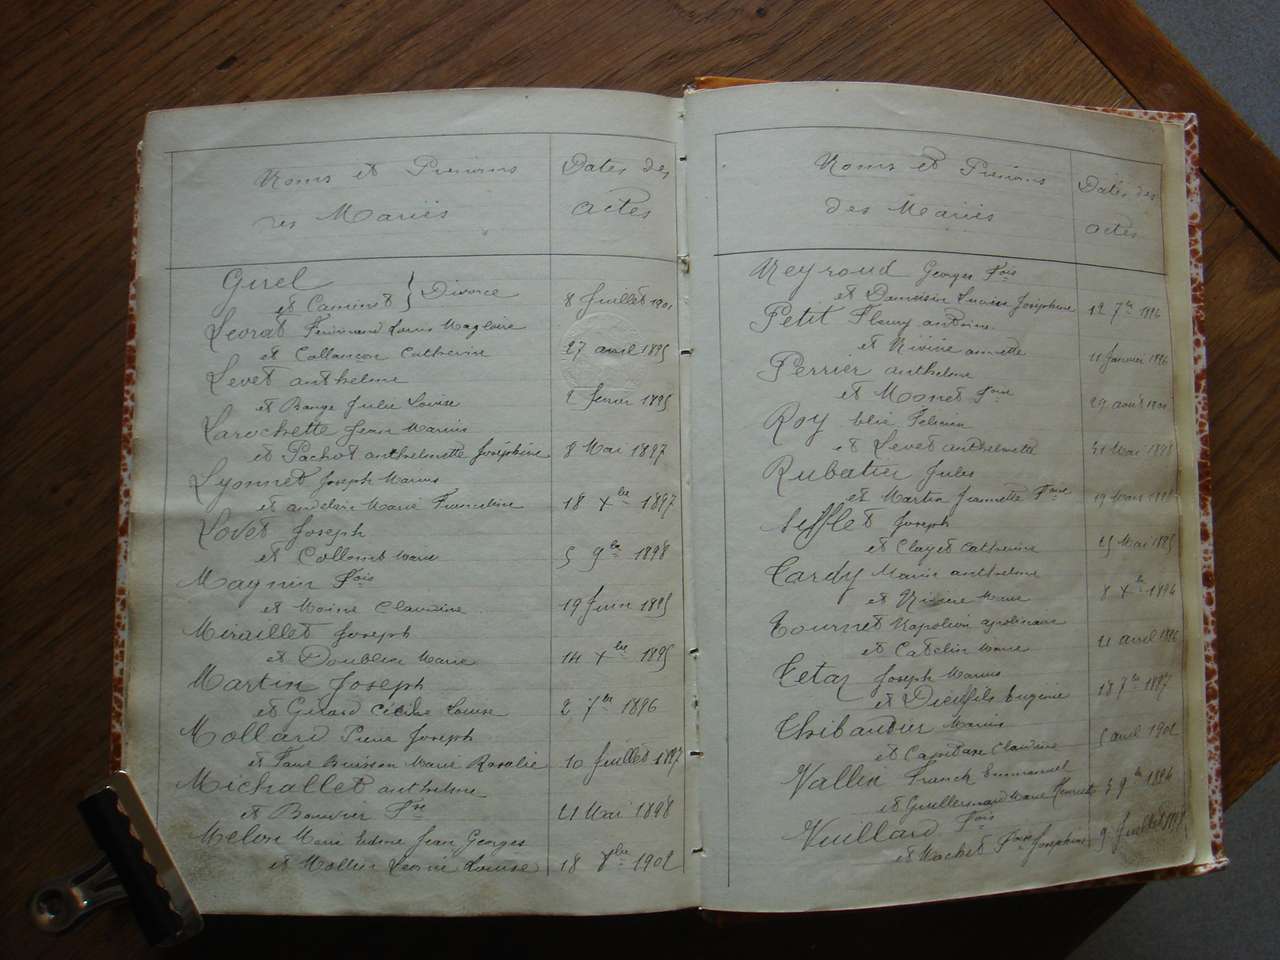 Noms et Prénoms
des Mariés
Dates des
actes
Girel
et Caminet } Divorce 8 Juillet 1901
Levrat Ferdinand Louis Magloire
et Collançon Catherine 27 avril 1895
Levet anthelme
et Bange Julie Louise février 1895
Larochette Jean Marius
et Pachot anthelmette Joséphine 8 Mai 1897
Lyonnet Joseph Marius
et Marie Franceline 18 Xbre 1897
Lovet Joseph
et Collomb Marie 5 9bre 1898
Magnin Fois
et Moine Claudine 19 Juin 1895
Miraillet Joseph
et Doublen Marie 14 Xbre 1895
Martin Joseph
et Girard Cécile Louise 2 7bre 1896
Mollard Pierre Joseph
et Faure Buisson Marie Rosalie 10 Juillet 1897
Michallet anthelme
et Bouvier Fse 21 Mai 1898
Melon Marie Jean Georges
et Mollier Léonie Louise 18 8bre 1902
Noms et Prénoms
des Mariés
Dates des
actes
Neyroud Georges Fois
et Damaisin Louise Joséphine 12 7bre 1896
Petit Fleury antoine
et Rivière annette 11 Janvier 1896
Perrier anthelme
et Monet Fse 29 août
Roy Félicien
et Levet anthelmette 31 Mai 1898
Rubatier Jules
et Martin Jeannette Fse 19 Mars
Sifflet Joseph
et Clayet Catherine 25 Mai 1895
Tardy Marin anthelme
et Rivière Marie 8 Xbre 1896
Tournet Napoléon apolinaire
et Catelin Marie 11 avril 1896
Tetaz Joseph Marius
et Dieufils Eugénie 18 7bre 1897
Thibaudier Marius
et Capitaxe Claudine avril 1902
Vallin Franck Emmanuel
et Guillermard Marie Henriet 5 9bre 1896
Vuillard Fois
et Mochet Fse Joséphine 9 Juillet